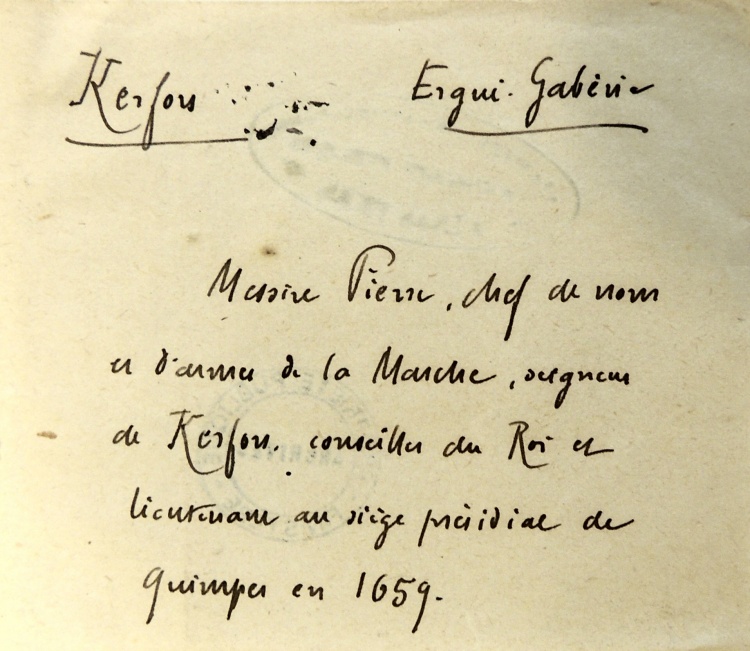 Kerfors Ergué-Gabéric
Messire Pierre, chef de nom
et d'armes de la Marche, seigneur
de Kerfors, conseiller du Roi et
lieutenant au siège présidial de
Quimper en 1659.